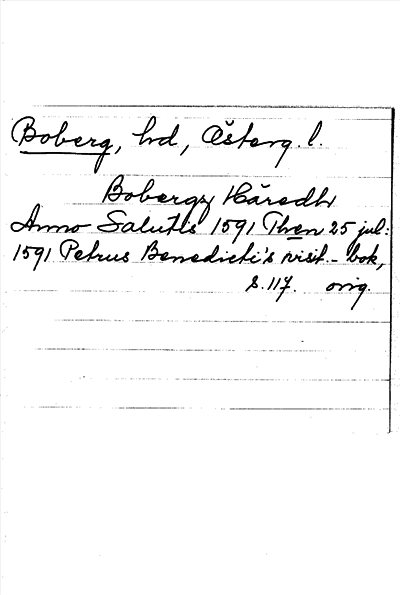 Boberg, hd, Österg. l.
Bobergz Häredh
Anno Salutis 1591 Then 25 jul:
1591 Petrus Benedicti's visit.- bok,
s. 117. orig.